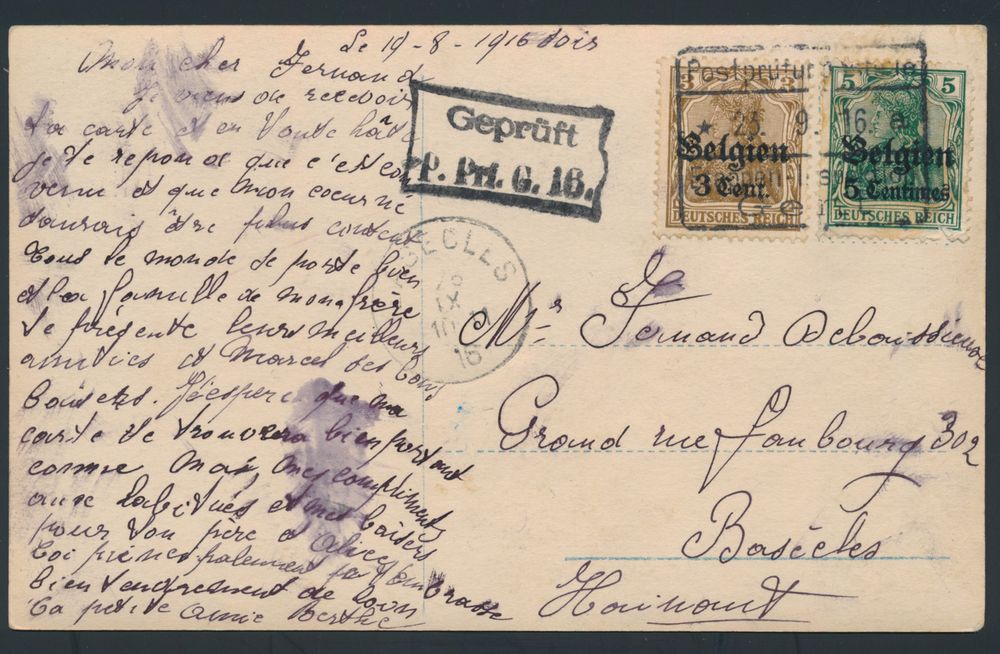 Le 19-8-1916 soir
Mon cher Fernand
Je viens de recevoir
ta carte et en toute hâte
je te repond que c'est con
venu et que mon coeur ne
daurais être plus content
tous le monde se porte bien
et la famille de mon frère
te présente leurs meilleurs
amitiés et Marcel ses bons
baisers. J'éspère que ma
carte te trouvera bien portant
comme moi, mes compliments
aux et mes baisers
pour ton père et
toi principalement
bien tendrement de loin
ta petite amie Berthe
Geprüft
P. Prf. G. 16.
3 3
Belgien
3 Cent.
DEUTSCHES REICH
5 5
Belgien
5 Centimes
DEUTSCHES REICH
Postprüfungsstelle
23. 9. 16.
BASECLES
IX
16
Mr Fernand Debaissieux
Grand rue Faubourg 302
Basècles
Hainaut